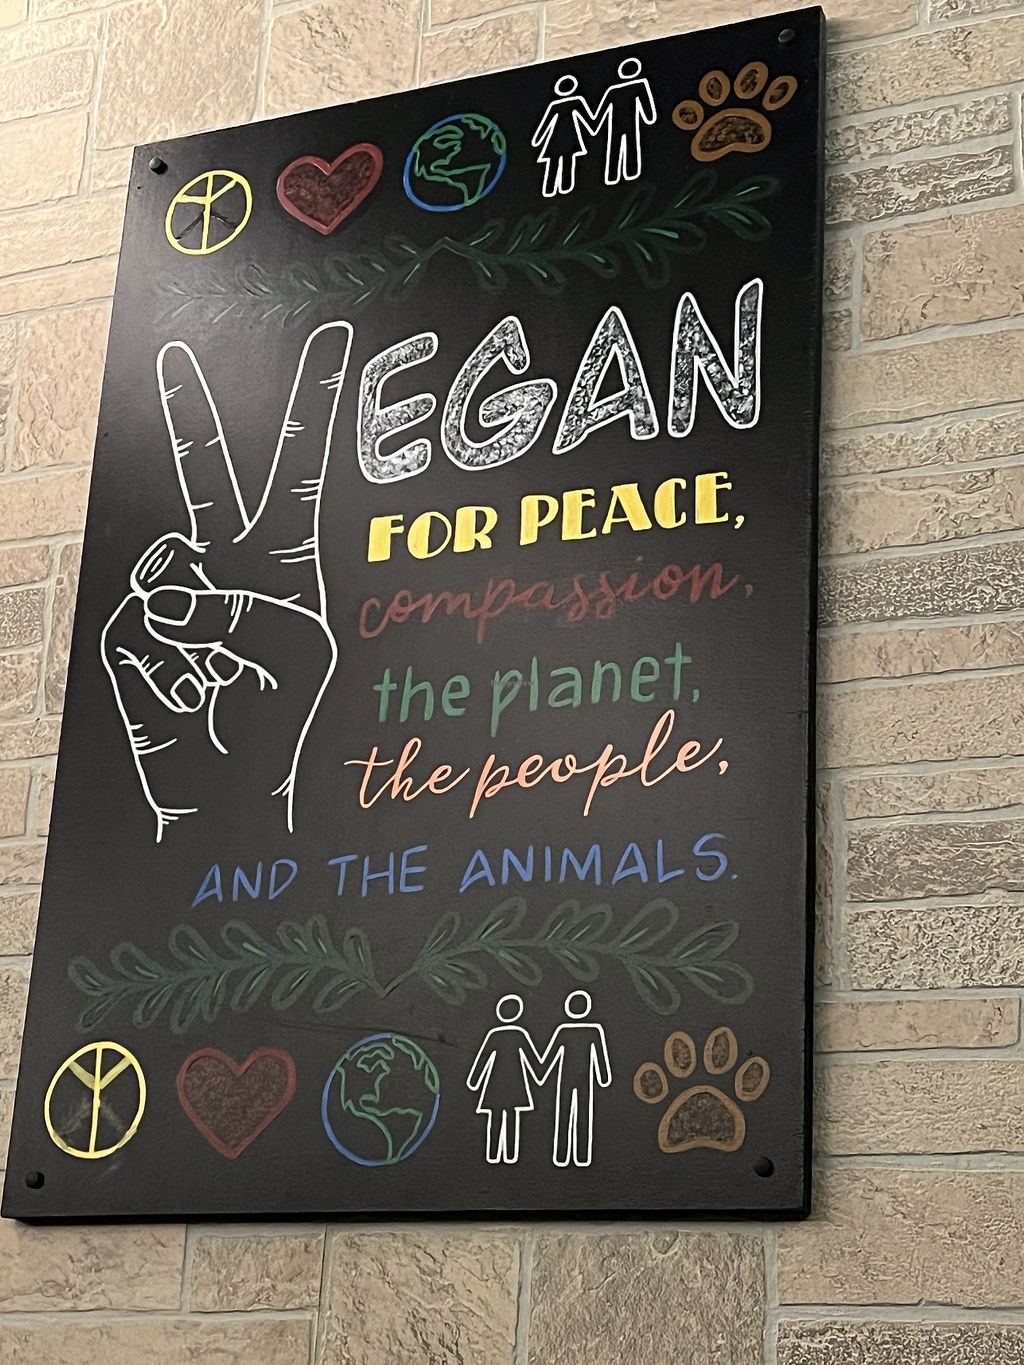 VEGAN
FOR PEACE,
compassion,
the planet,
the people,
AND THE ANIMALS.